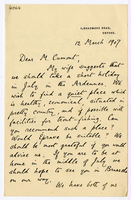 12 March 1907
Dear M. Cumont,
My wife suggests that
we should take a short holiday
in July in the Ardennes. We
wish to find a quiet place which
is healthy, economical, situated in
pretty country, and if possible with
facilities for trout-fishing. Can
you recommend such a place?
Would be suitable? We
should be most grateful if you would
advise us. If you are to be at
home in the middle of July we
should hope to see you in Brussels
on our way.
We have both of us